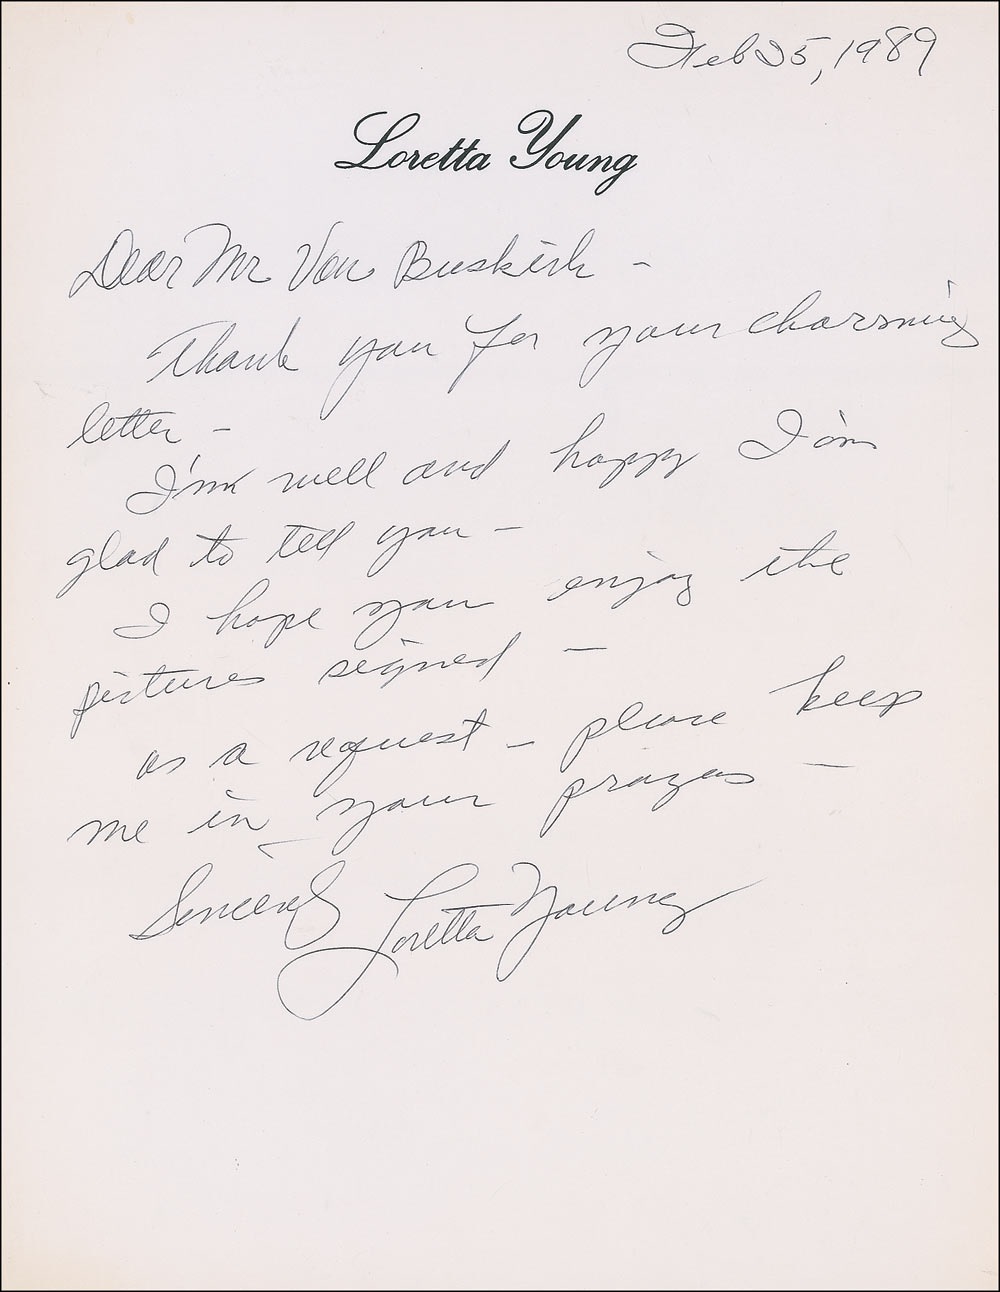 Feb 25, 1989
Loretta Young
Dear Mr Van Buskirk -
Thank you for your charming
letter -
I'm well and happy I'm
glad to tell you -
I hope you enjoy the
pictures signed -
as a request - please keep
me in your prayers -
Sincerely Loretta Young